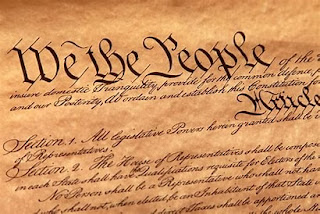 We the People of the
insure domestic Tranquility, provide for the common defence,
and our Posterity, do ordain and establish this Constitution for
Article
Section. 1. All legislative Powers herein granted shall be
of Representatives.
Section. 2. The House of Representatives shall be composed
in each State shall have Qualifications requisite for Electors of the
No Person shall be a Representative who shall not have
who shall not, when elected, be an Inhabitant of that State